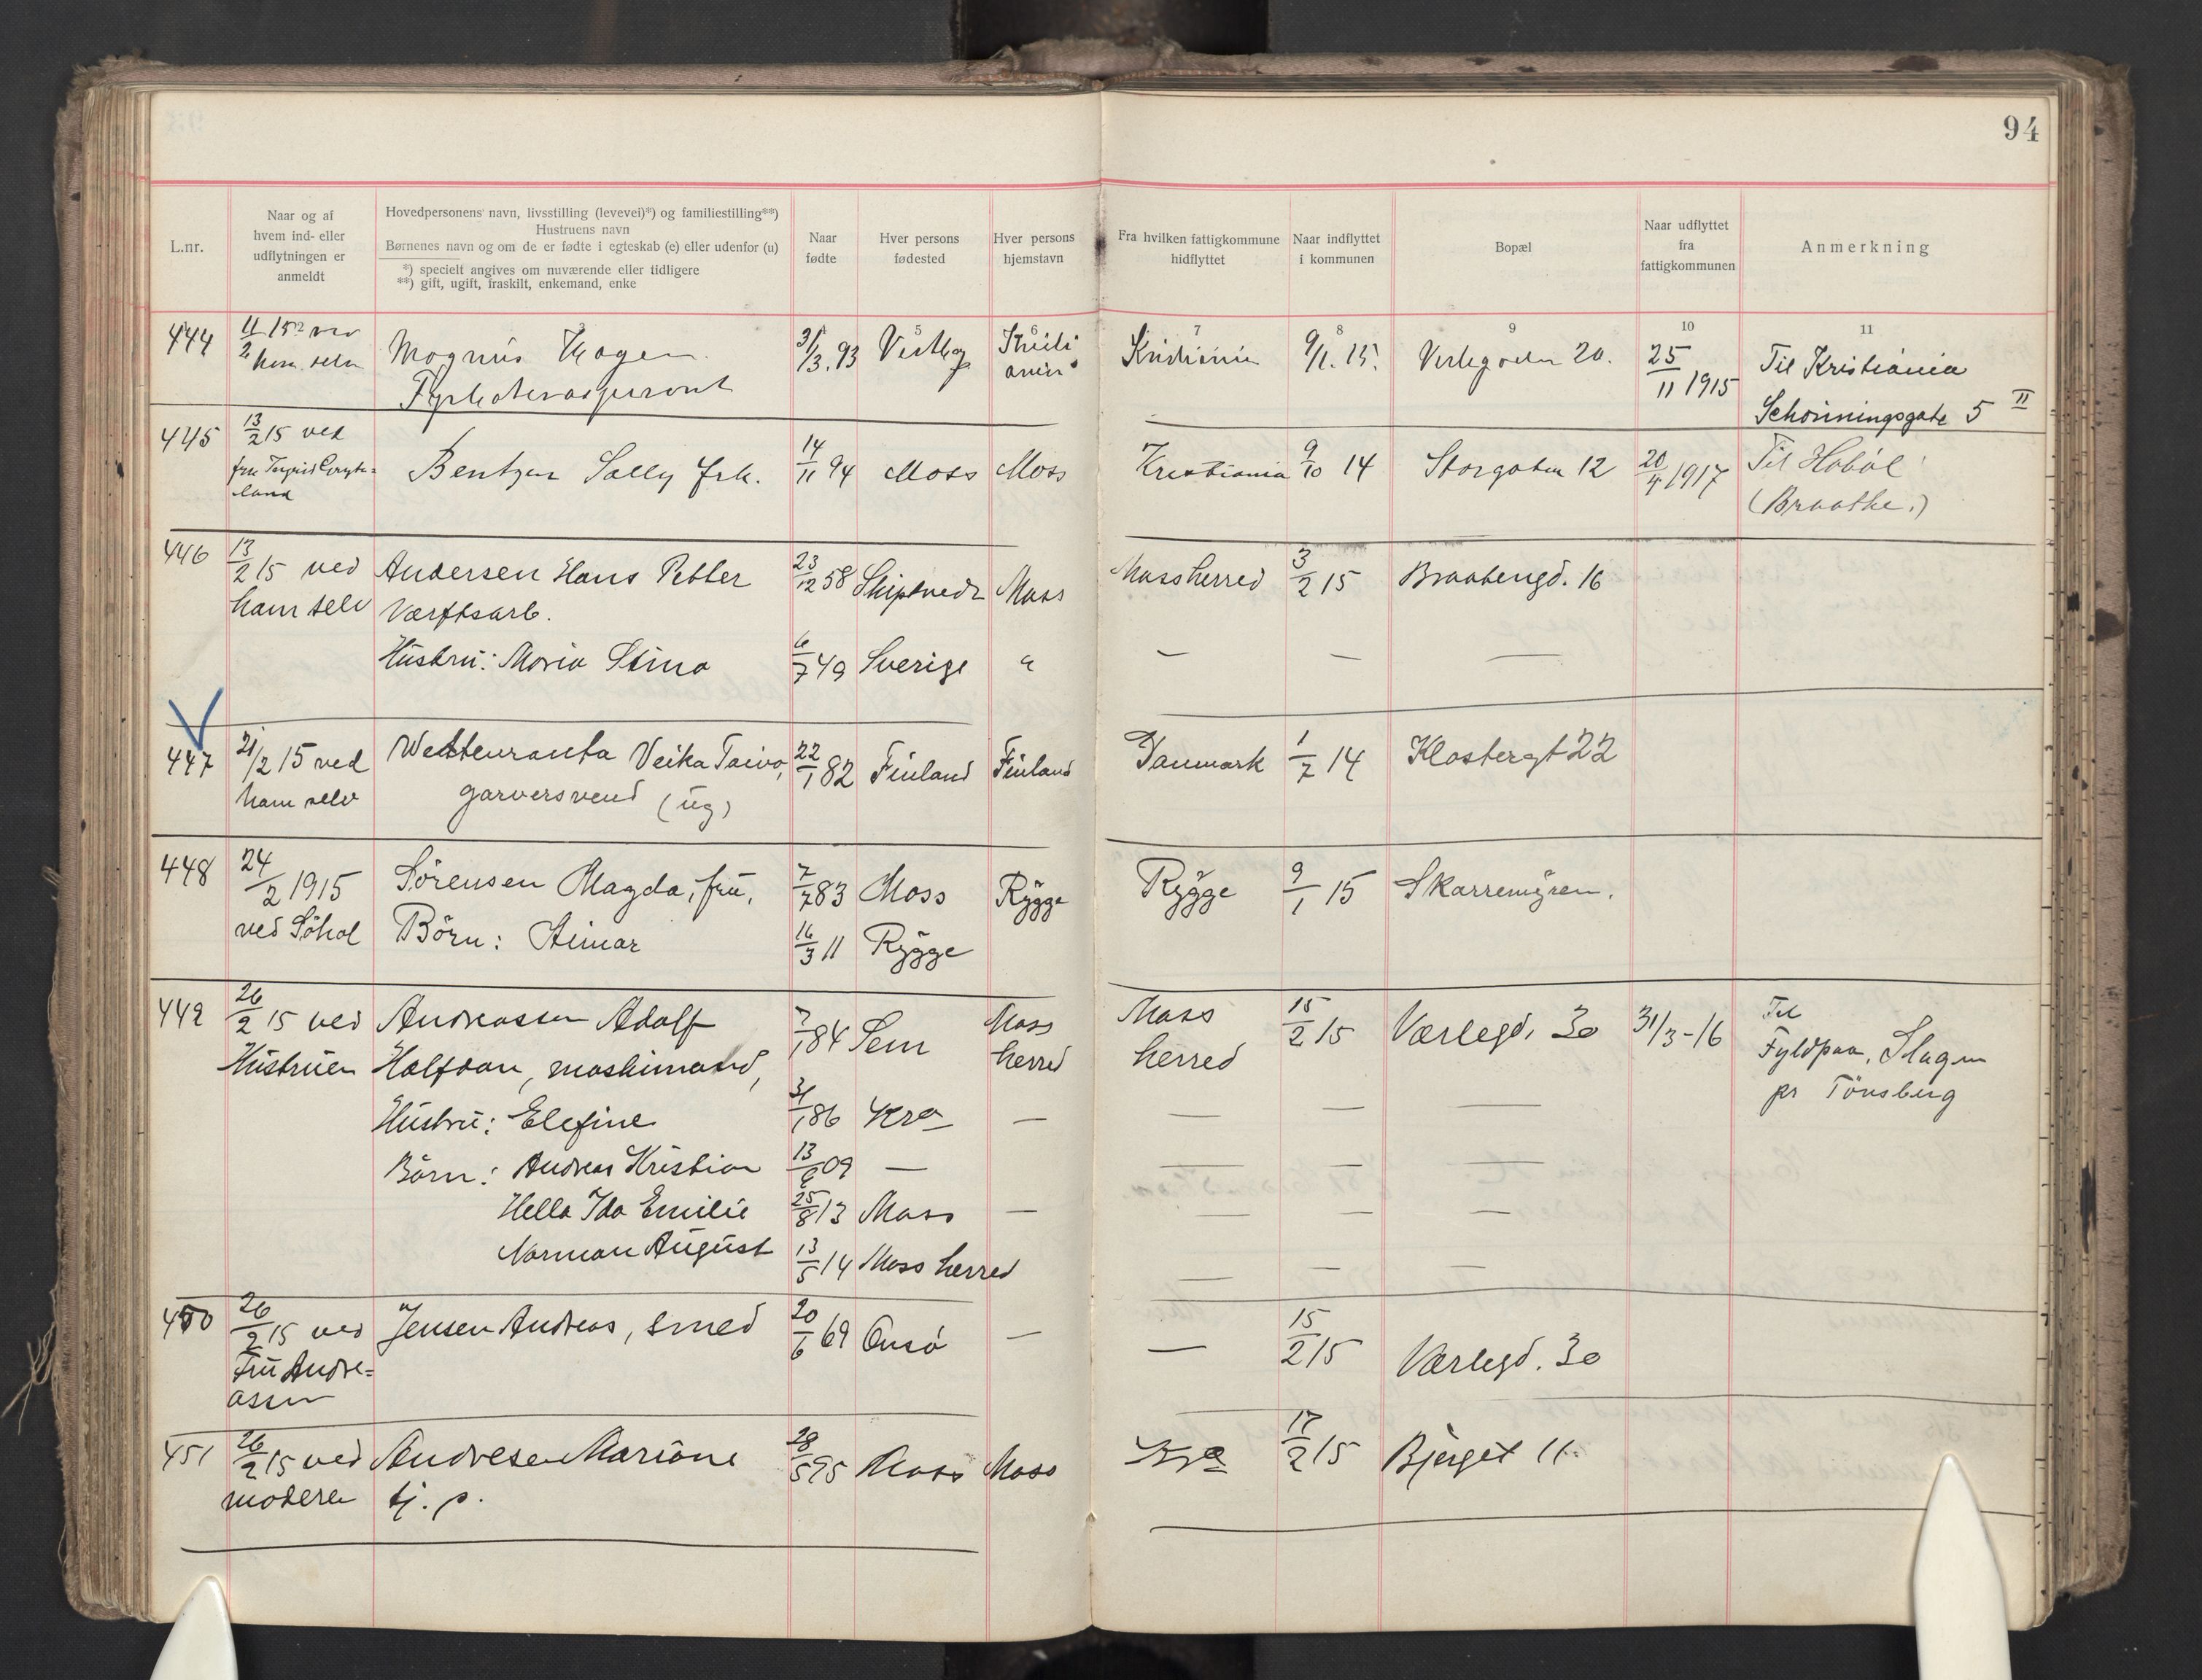 94
L.nr.
Naar og af
hvem ind- eller
udflytningen er
anmeldt
Hovedpersonens navn, livsstilling (levevei)*) og familiestilling**)
Hustruens navn
Børnenes navn og om de er fødte i egteskab (e) eller udenfor (u)
*) specielt angives om nuværende eller tidligere
**) gift, ugift, fraskilt, enkemand, enke
Naar
fødte
Hver persons
fødested
Hver persons
hjemstavn
Fra hvilken fattigkommune
hidflyttet
Naar indflyttet
i kommunen
Bopæl
Naar udflyttet
fra
fattigkommunen
Anmerkning
5 6 7 8 9 10 11
444 11/2 15 ved Magnus Hagen 31/3.93 Vestby Kristi Kristiania 9/1.15. Verlegaden 20. 25/11 1915 Til Kristiania
ham selv ania
Schonningsgate 5 II
445 13/2 15 ved Bentzen Sally frk. 14/11 94 Moss Moss Kristiania 9/10 14 Storgaten 12 20/4 1917 Til Hobøl
fru Ingrid
land (Braathe.)
446 13/2 15 ved Andersen Hans Petter 23/12 58 Skiptvedt Moss Mossherred 3/2 15 Braatengd. 16
ham selv Værftsarb.
Hustru: Maria Stina 6/7 49 Sverige " — — —
447 21/2 15 ved Wettenranta Veika Taivo, 22/1 82 Finland Finland Danmark 1/7 14 Klostergt 22
ham selv garversvend (ug)
448 24/2 1915 Sörensen Magda, fru, 7/7 83 Moss Rygge Rygge 9/1 15 Skarremyren.
ved Söhol Börn: Aimar 16/3 11 Rygge
449 26/2 15 ved Andreassen Adolf 7/1 84 Sem Moss Moss 15/2 15 Værlegd. 30 31/3-16 Til
Hustruen Halfdan, maskinmand, herred herred Fyldpaa, Slagen
pr Tönsberg
Hustru: Elefine 31/1 86 Kra — — — —
Börn: Andreas Kristian 13/6 09 — — — —
Hella Ida Emilie 25/8 13 Moss — — — —
Norman August 13/5 14 Moss herred — — —
450 26/2 15 ved Jensen Andreas, smed 20/6 69 Onsö — — 15/2 15 Værlegd. 30
Fru Andre=
assen
451 26/2 15 ved Andresen Marione 28/5 95 Moss Moss Kra 17/2 15 Bjerget 11.
moderen tj. p.